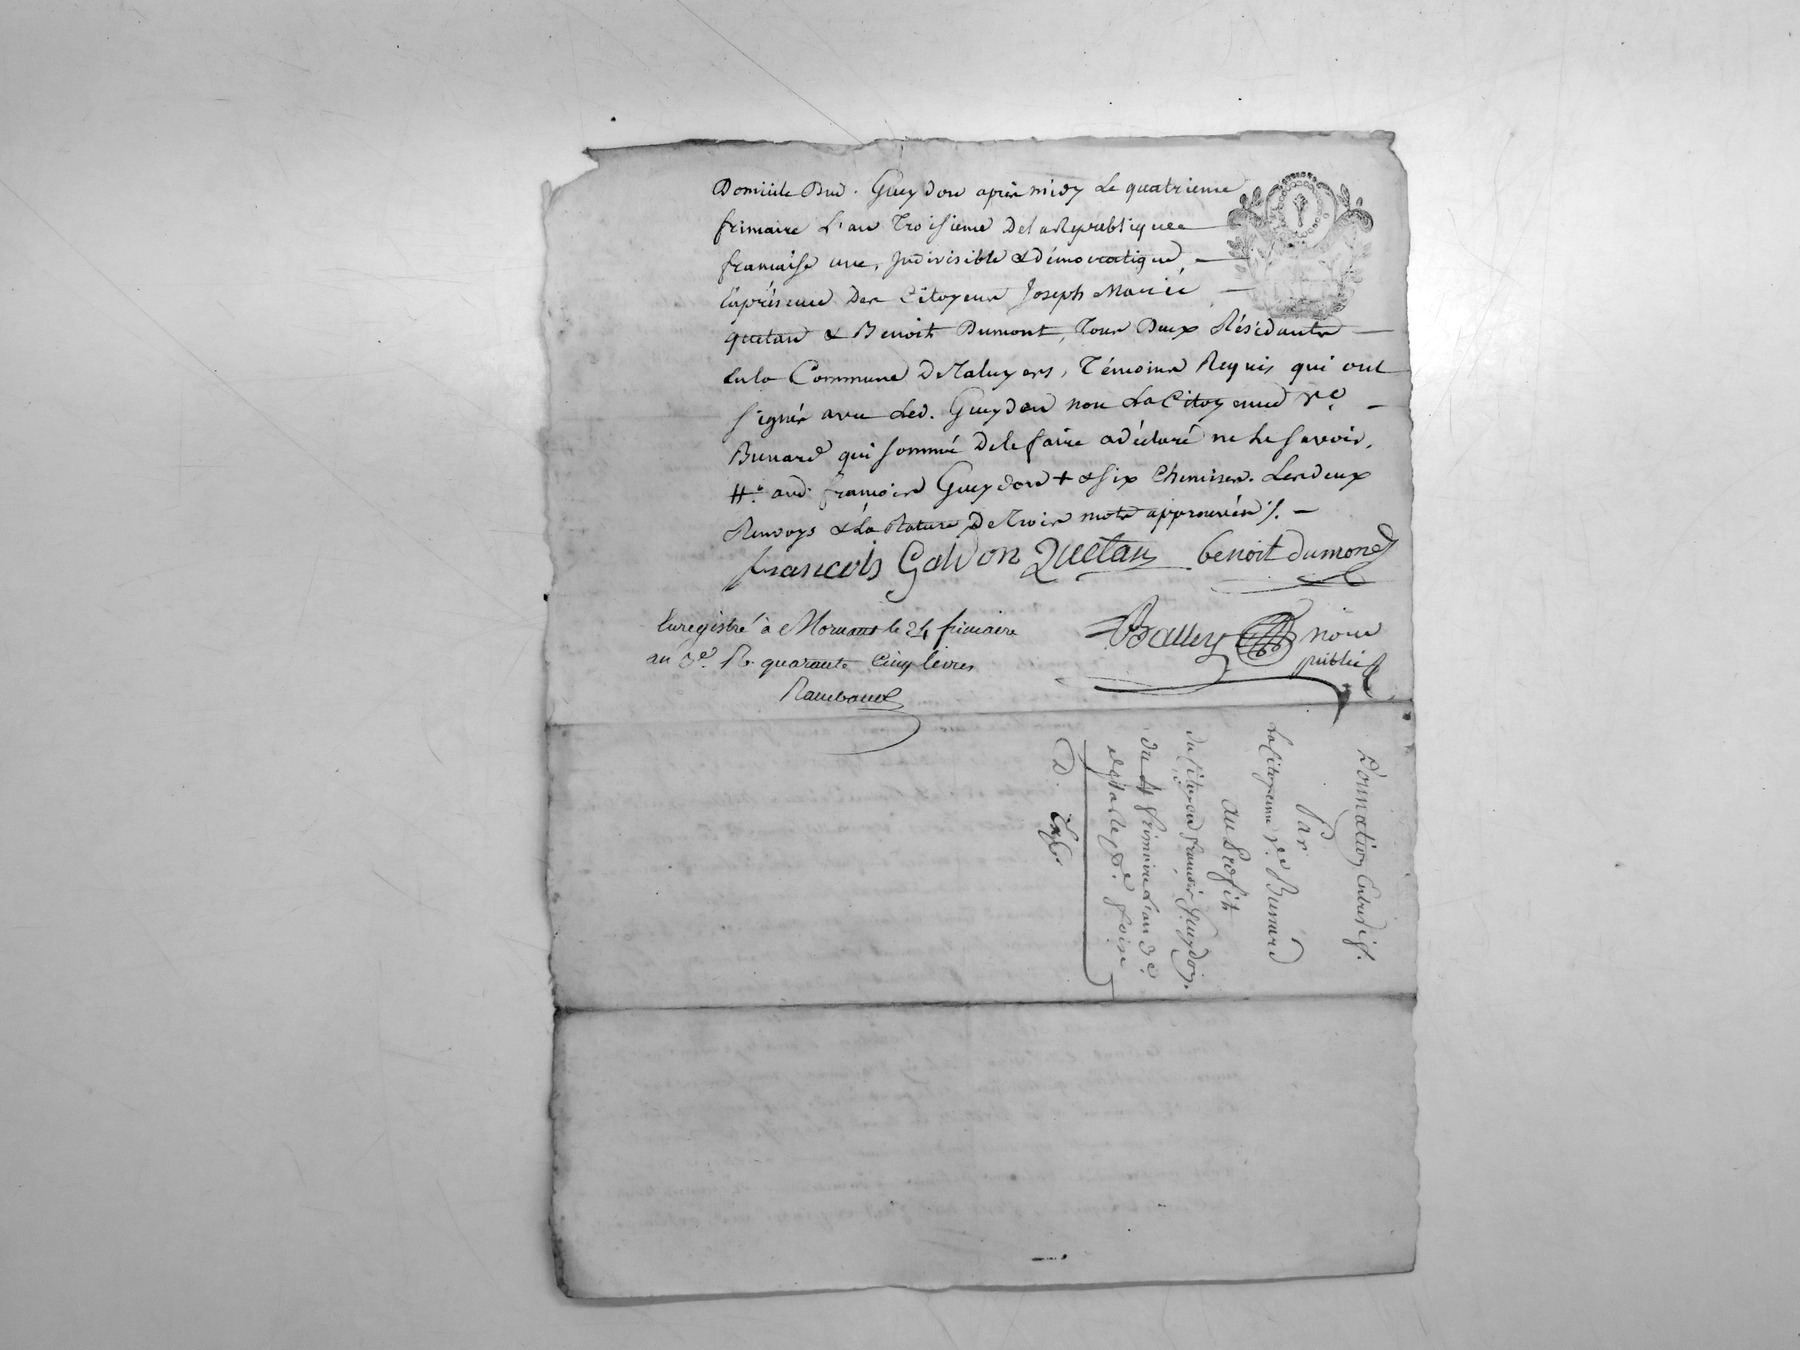 Domicile Dud. Gueydon après midy Le quatrieme
frimaire L'an Troisieme De la Republique
francaise une, Indivisible & démocratique
En présence Des Citoyens Joseph Marie
quetan & Benoit Dumont, Tous Deux Résidants
En la Commune De Taluyers, Témoins Requis qui ont
signés avec Led. Gueydon non La Citoyenne Ve.
Bunard qui sommé De le faire a déclaré ne Le savoir.
#. aud. francois Gueydon + & six Chemises. Les deux
Renvoys & la Rature De Trois mots approuvées /.
francois Galdon Quetan benoit dumond
Enregistré à Mornant le 24 frimaire
an 3e. R. quarante Cinq livres
Balley nore
public
Donnation Entrevifs.
Par
La Citoyenne Ve. Bunard
au Profit
du Citoyen francois Gueydon.
du 4 frimaire L'an 3e.
D.